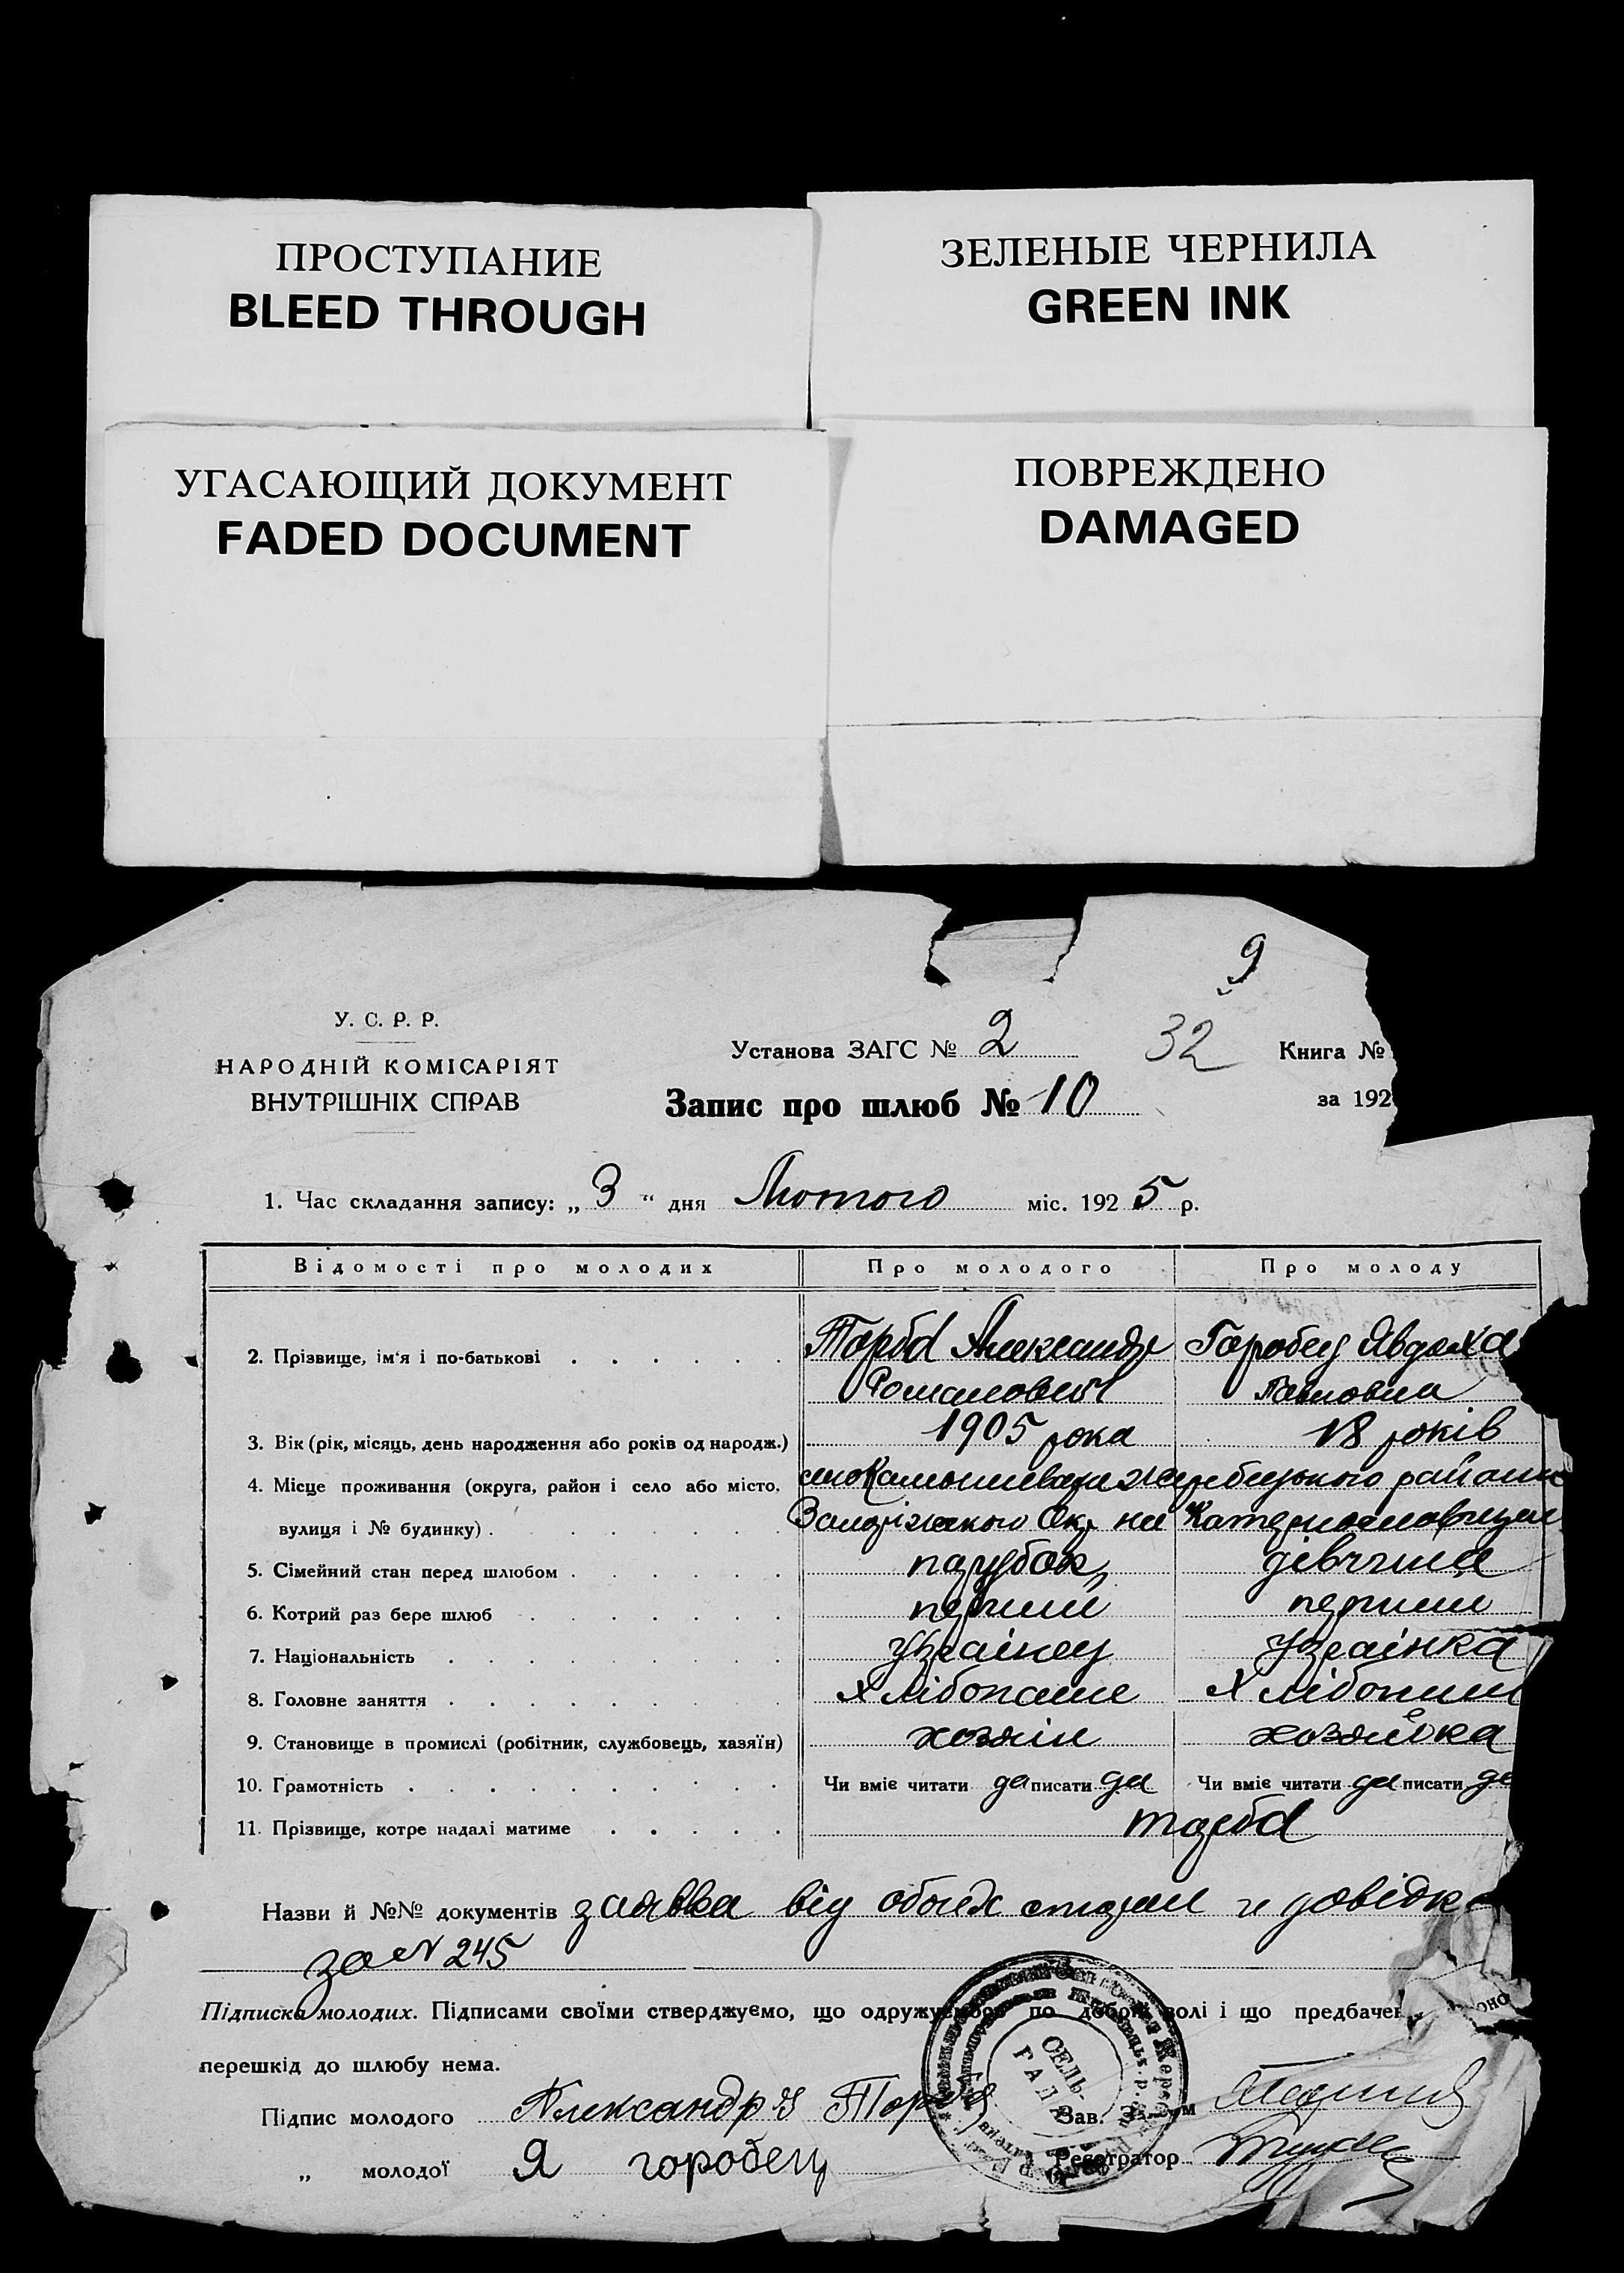 ПРОСТУПАНИЕ
BLEED THROUGH
ЗЕЛЕНЫЕ ЧЕРНИЛА
GREEN INK
УГАСАЮЩИЙ ДОКУМЕНТ
FADED DOCUMENT
ПОВРЕЖДЕНО
DAMAGED
9
У. С. Р. Р.
НАРОДНІЙ КОМІСАРІЯТ
ВНУТРІШНІХ СПРАВ
Установа ЗАГС № 2 32 Книга №
Запис про шлюб № 10 за 192
1. Час складання запису: „ 3 “ дня Лютого міс. 192 5 р.
Відомості про молодих Про молодого Про молоду
2. Прізвище, ім'я і по-батькові Торба Александр Горобец Явдоха
Романович Павловна
3. Вік (рік, місяць, день народження або років од народж.) 1905 рока 18 років
4. Місце проживання (округа, район і село або місто, района
вулиця і № будинку) Запоріжського Окр на Катеринославщині
5. Сімейний стан перед шлюбом парубок дівчина
6. Котрий раз бере шлюб перший перший
7. Національність Українец Українка
8. Головне заняття Хлібопаше
9. Становище в промислі (робітник, службовець, хазяїн) хозяїн хозяйка
10. Грамотність Чи вміє читати да писати да Чи вміє читати да писати да
11. Прізвище, котре надалі матиме торба
Назви й №№ документів заявка від обоїх сторон и довідк
за № 245
Підписка молодих. Підписами своїми стверджуємо, що одружуємося по добрій волі і що предбачен
перешкід до шлюбу нема.
Підпис молодого Александр Торба Зав.
„ молодої Я горобец Реєстратор
СЕЛЬ-